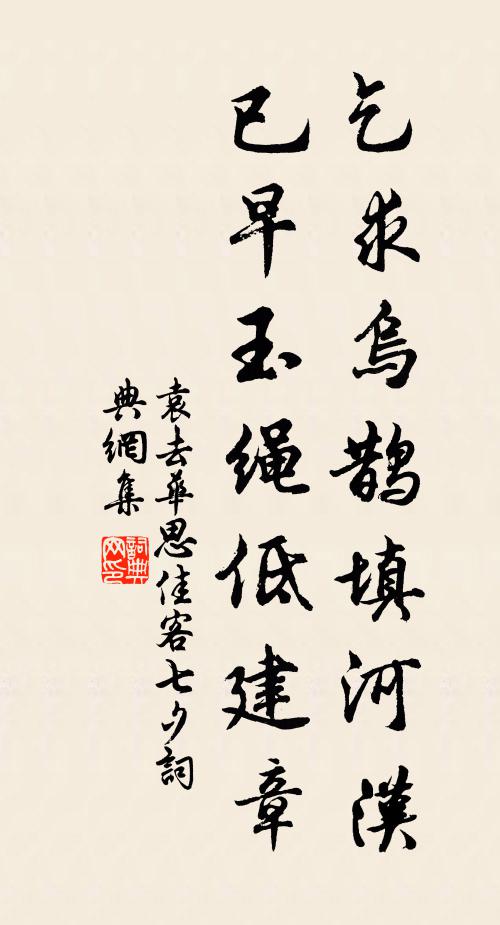 乞求烏鵲填河漢
已早玉繩低建章
袁去華思佳客七夕詞
典網集
詞典网印